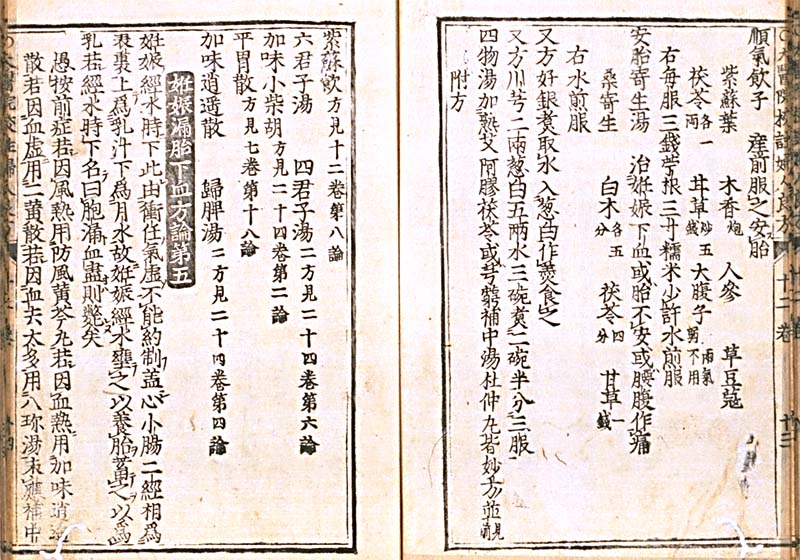 順氣飲子 産前服之安胎
紫蘇葉 木香炮 人參 草豆蔻
茯苓各一兩 甘草炙五錢 大腹子氣男不用
右每服三錢苧根三寸糯米少許水煎服
安胎寄生湯 治姙娠下血或胎不安或腰腹作痛
桑寄生 白木各五分 茯苓四分 甘草一錢
右水煎服
又方好銀煑取水入葱白作羹食之
又方川芎二兩葱白五兩水三碗煑二碗半分三服
四物湯加熟艾阿膠茯苓或芎補中湯杜仲丸皆妙方並見前
附方
紫蘇飲方見十二卷第八論
六君子湯 四君子湯二方見二十四卷第六論
加味小柴胡方見二十四卷第二論
平胃散方見七卷第十八論
加味逍遥散 歸脾湯二方見二十四卷第四論
姙娠漏胎下血方論第五
姙娠經水時下此由衝任氣虛不能約制盖心小腸二經相爲
表裏上爲乳汁下爲月水故姙娠經水壅之以養胎蓄之以爲
乳若經水時下名曰胞漏血盡則斃矣
愚按前症若因風熱用防風黃芩丸若因血熱用加味逍遥
散若因血虛用二黃散若因血去太多用八珍湯未應補中
十二卷